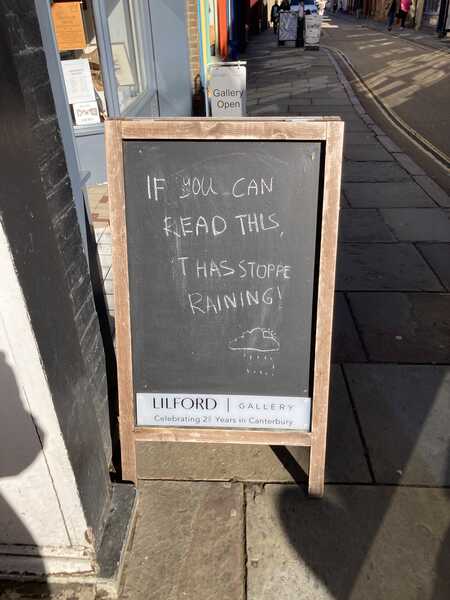 Gallery
Open
IF YOU CAN
READ THIS,
T HAS STOPPE
RAINING!
LILFORD | GALLERY
Celebrating Years in Canterbury